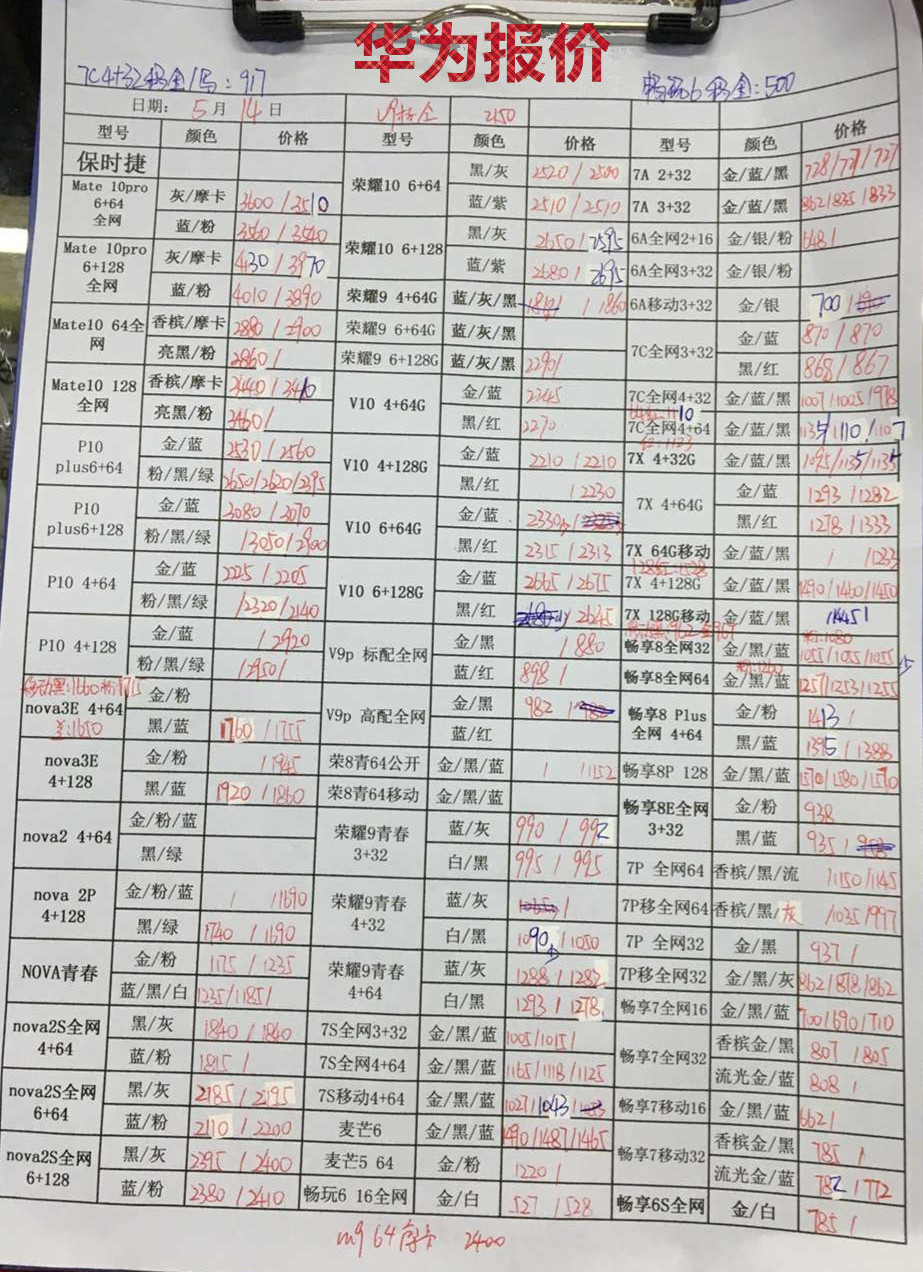 华为报价
7C4+32
:917
500
日期: 5 月 14 日
2150
型号 颜色 价格 型号 颜色 价格 型号 颜色 价格
保时捷
荣耀10 6+64 黑/灰 2520/2500 7A 2+32 金/蓝/黑 728/727/727
Mate 10pro 6+64 全网 灰/摩卡 3600/3510 蓝/紫 2510/2510 7A 3+32 金/蓝/黑 862/835/833
蓝/粉 3560/3540 荣耀10 6+128 黑/灰 2650/2595 6A全网2+16 金/银/粉 648/
Mate 10pro 6+128 全网 灰/摩卡 4130/3970 蓝/紫 2680/2695 6A全网3+32 金/银/粉
蓝/粉 4010/3890 荣耀9 4+64G 蓝/灰/黑 /1860 6A移动3+32 金/银 700/
Mate10 64全网 香槟/摩卡 2880/2900 荣耀9 6+64G 蓝/灰/黑 7C全网3+32 金/蓝 870/870
亮黑/粉 2860/ 荣耀9 6+128G 蓝/灰/黑 2290/ 黑/红 868/867
Mate10 128全网 香槟/摩卡 3440/3410 V10 4+64G 金/蓝 2245 7C全网4+32 金/蓝/黑 1007/1005/978
亮黑/粉 3460/ 黑/红 2270 7C全网4+64 金/蓝/黑 1135/1110/1107
P10 plus6+64 金/蓝 2530/2560 V10 4+128G 金/蓝 2210/2210 7X 4+32G 金/蓝/黑 1095/1135/1135
粉/黑/绿 2650/2620/2395 黑/红 /2230 7X 4+64G 金/蓝 1293/1282
P10 plus6+128 金/蓝 3080/3070 V10 6+64G 金/蓝 2330 黑/红 1278/1333
粉/黑/绿 /3050/2900 黑/红 2315/2313 7X 64G移动 金/蓝/黑 / /1283
P10 4+64 金/蓝 2225/2205 V10 6+128G 金/蓝 2665/2675 7X 4+128G 金/蓝/黑 1490/1460/1450
粉/黑/绿 /2320/2140 黑/红 /2645 7X 128G移动 金/蓝/黑 1445/
P10 4+128 金/蓝 /2920 V9p 标配全网 金/黑 /880 畅享8全网32 金/黑/蓝 1055/1055/1055
粉/黑/绿 /2950/ 蓝/红 898/ 畅享8全网64 金/黑/蓝 1257/1253/1255
nova3E 4+64 金/粉 V9p 高配全网 金/黑 982/ 畅享8 Plus 全网 4+64 金/粉 1413/
黑/蓝 1760/1755 蓝/红 黑/蓝 1395/1388
nova3E 4+128 金/粉 /1945 荣8青64公开 金/黑/蓝 / /1152 畅享8P 128 金/黑/蓝 1570/1580/1570
黑/蓝 1920/1860 荣8青64移动 金/黑/蓝 畅享8E全网 3+32 金/粉 938
nova2 4+64 金/粉/蓝 荣耀9青春 3+32 蓝/灰 990/992 黑/蓝 935/
黑/绿 白/黑 995/995 7P 全网64 香槟/黑/流 /1150/1145
nova 2P 4+128 金/粉/蓝 / /1690 荣耀9青春 4+32 蓝/灰 / 7P移全网64 香槟/黑/灰 /1035/997
黑/绿 1740/1690 白/黑 1090/1050 7P 全网32 金/黑 937/
NOVA青春 金/粉 1175/1235 荣耀9青春 4+64 蓝/灰 1288/1282 7P移全网32 金/黑/灰 862/878/862
蓝/黑/白 1235/1185/ 白/黑 1293/1278 畅享7全网16 金/黑/蓝 700/690/710
nova2S全网 4+64 黑/灰 1840/1840 7S全网3+32 金/黑/蓝 1005/1015/ 畅享7全网32 香槟金/黑 807/805
蓝/粉 1815/ 7S全网4+64 金/黑/蓝 1165/1118/1125 流光金/蓝 808/
nova2S全网 6+64 黑/灰 2185/2195 7S移动4+64 金/黑/蓝 1027/1043/ 畅享7移动16 金/黑/蓝 662/
蓝/粉 2110/2200 麦芒6 金/黑/蓝 1490/1487/1465 畅享7移动32 香槟金/黑 785/
nova2S全网 6+128 黑/灰 2395/2400 麦芒5 64 金/粉 1220/ 流光金/蓝 782/772
蓝/粉 2380/2410 畅玩6 16全网 金/白 527/528 畅享6S全网 金/白 785/
m9 64 2400